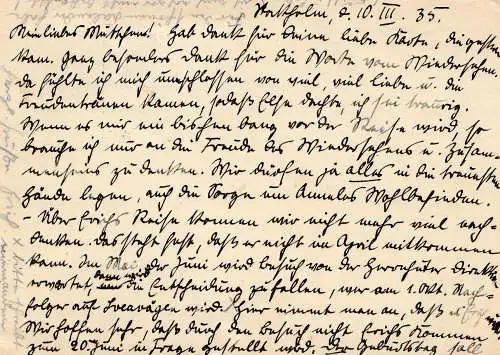 Stockholm, d. 10. III. 35.
Mein liebes Muttchen! Hab Dank für Deine liebe Karte, die gestern
kam. Ganz besonders Dank für die Worte vom Wiedersehen,
da fühlte ich mich umschlossen von viel, viel Liebe u. die
Freudentränen kamen, sodaß Else dachte, ich sei traurig.
Wenn es mir ein bischen bang vor der Reise wird, so
brauche ich nur an die Freude des Wiedersehens u. Zusam-
menseins zu denken. Wir dürfen ja alles in die treuesten
Hände legen, auch die Sorge um Anneles Wohlbefinden.
- Über Erichs Reise können wir nicht mehr viel nach-
denken. Das steht fest, daß er nicht im April mitkommen
kann. Im Mai oder Juni wird Besuch von der Herrnhuter Direktion
erwartet, dann wird die Entscheidung zu fallen, wer am 1. Okt. Nach-
folger auf wird. Hier nimmt man an, daß es Erich
Wir hoffen sehr, daß durch den Besuch nicht Erichs Kommen
zum 20. Juni in Frage gestellt wird. Der Geburtstag soll